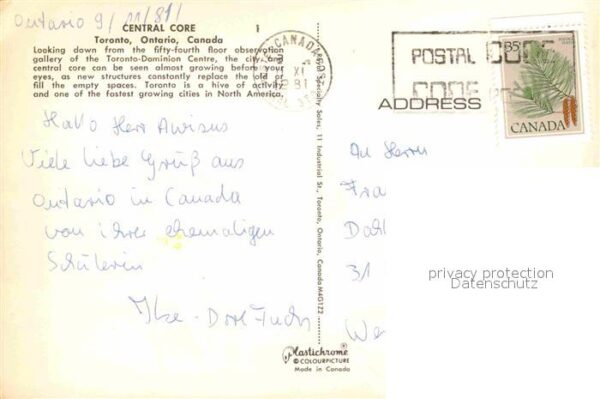 Ontario 9/11/81/
CENTRAL CORE 1
Toronto, Ontario, Canada
Looking down from the fifty-fourth floor observation
gallery of the Toronto-Dominion Centre, the city and
central core can be seen almost growing before your
eyes, as new structures constantly replace the old or
fill the empty spaces. Toronto is a hive of activity
and one of the fastest growing cities in North America.
Hallo Herr
Viele liebe Grüß aus
Ontario in Canada
von ihrer ehemaligen
Schülerin
Ilse-Dore Fuchs
Specialty Sales, 11 Industrial St., Toronto, Ontario, Canada M4G1Z2
Plastichrome
COLOURPICTURE
Made in Canada
CANADA
XI
81
POSTAL CODE
CODE
35
CANADA
ADDRESS
An Herrn
Fra
31
We
privacy protection
Datenschutz